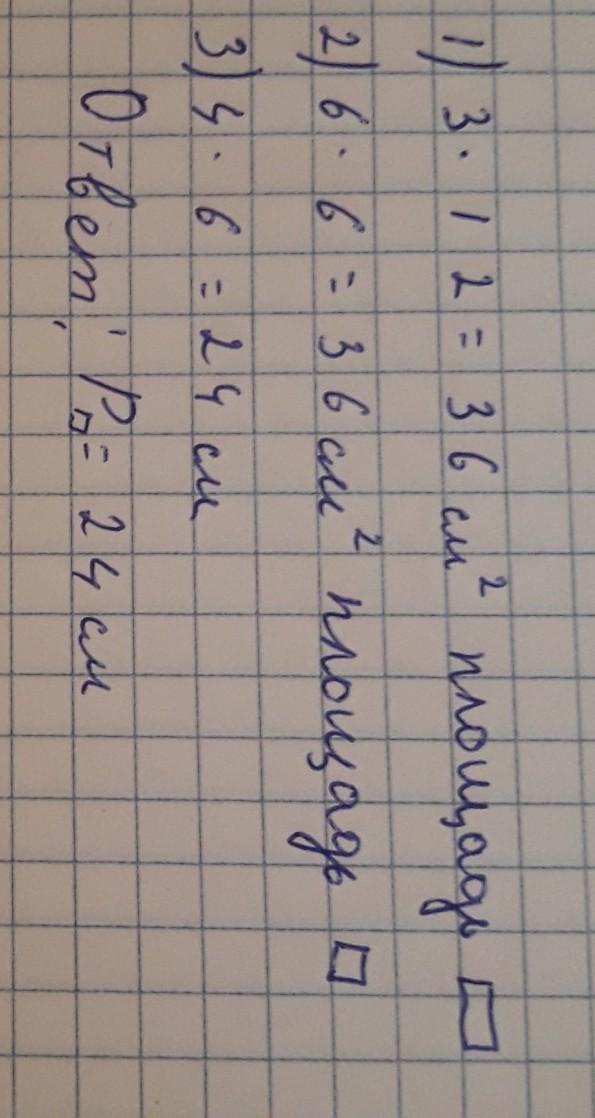 1) 3 · 12 = 36 см² площадь ▭
2) 6 · 6 = 36 см² площадь □
3) 4 · 6 = 24 см
Ответ: P□ = 24 см